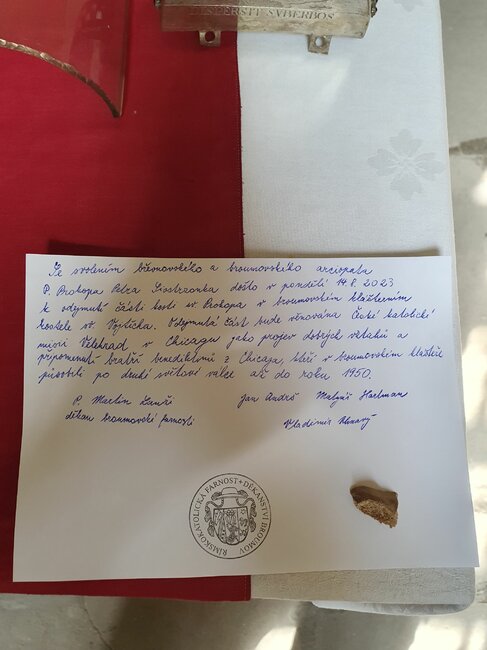 Se svolením břevnovského a broumovského arciopata
P. Prokopa Petra Siostrzonka došlo v pondělí 14. 8. 2023
k odejmutí části kosti sv. Prokopa v broumovském klášterním
kostele sv. Vojtěcha. Odejmutá část bude věnována České katolické
misii Velehrad v Chicagu jako projev dobrých vztahů a
připomenutí bratří benediktinů z Chicaga, kteří v broumovském klášteře
působili po druhé světové válce až do roku 1950.
P. Martin Lanži
Jan Andrš Matyáš Hartman
děkan broumovské farnosti
Vladimír
ŘÍMSKOKATOLICKÁ FARNOST + DĚKANSTVÍ BROUMOV